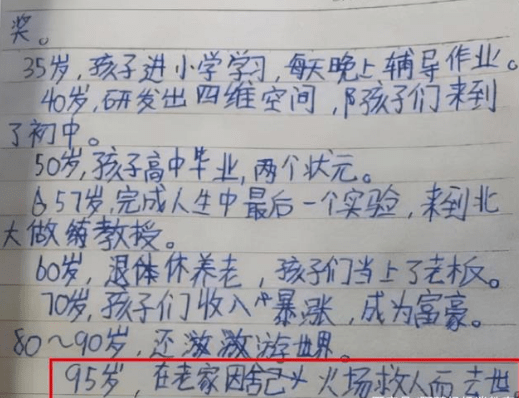 奖。
35岁,孩子进小学学习,每天晚上辅导作业。
40岁,研发出四维空间,陪孩子们来到
了初中。
50岁,孩子高中毕业,两个状元。
57岁,完成人生中最后一个实验,来到北
大做教授。
60岁,退休养老,孩子们当上了老板。
70岁,孩子们收入暴涨,成为富豪。
80~90岁,还激激游世界。
95岁,在老家因舍己火场救人而去世